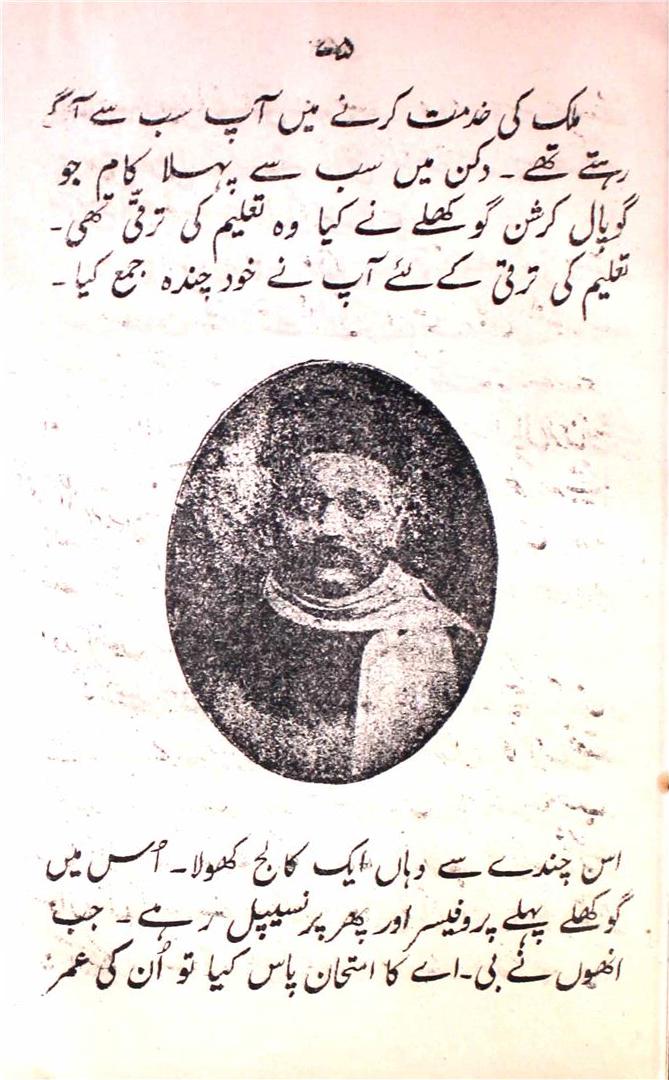 ملک کی خدمت کرنے میں آپ سب سے آگے
رہتے تھے۔ دکن میں سب سے پہلا کام جو
گوپال کرشن گوکھلے نے کیا وہ تعلیم کی ترقّی تھی۔
تعلیم کی ترقی کے لئے آپ نے خود چندہ جمع کیا۔
اس چندے سے وہاں ایک کالج کھولا۔ اُس میں
گوکھلے پہلے پروفیسر اور پھر پرنسیپل رہے۔ جب
انھوں نے بی۔اے کا امتحان پاس کیا تو اُن کی عمر